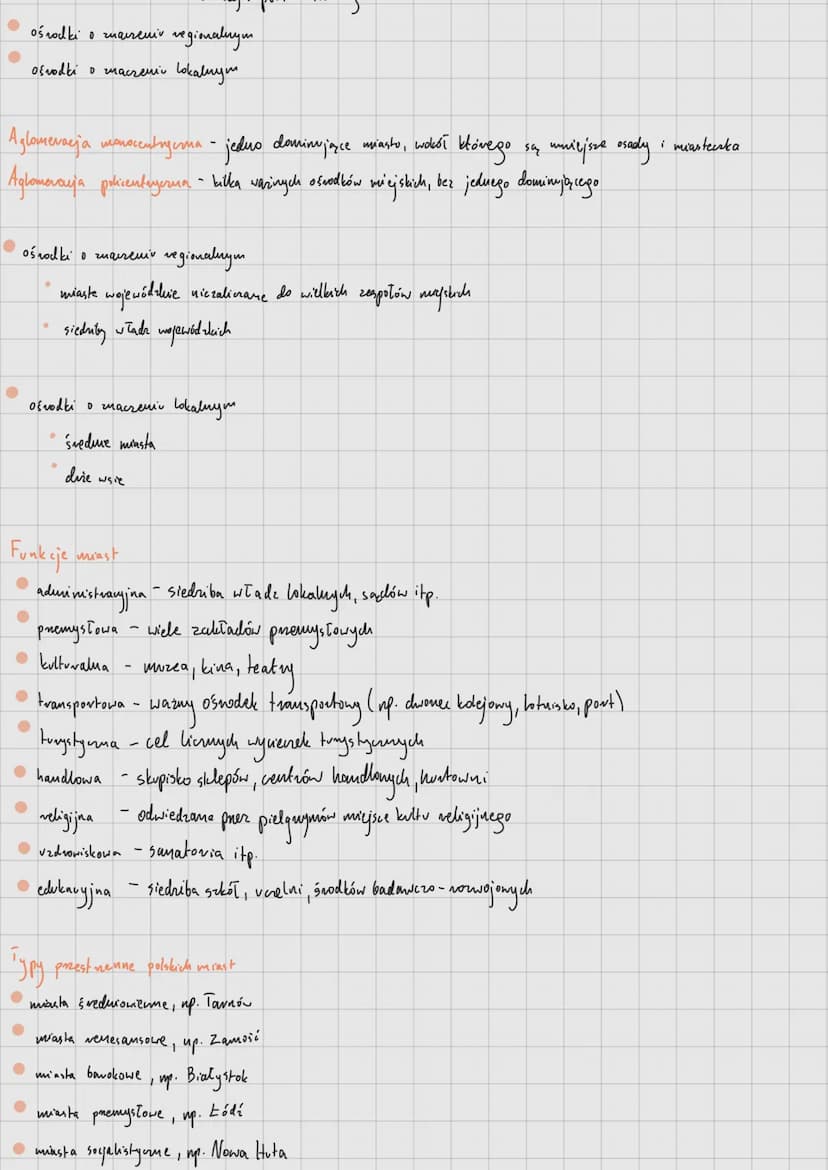 ośrodki o znaczeniu regionalnym
ośrodki o znaczeniu lokalnym
Aglomeracja monocentryczna - jedno dominujące miasto, wokół którego są mniejsze osady i miasteczka
Aglomeracja policentryczna - kilka ważnych ośrodków miejskich, bez jednego dominującego
ośrodki o znaczeniu regionalnym
miasta wojewódzkie niezaliczane do wielkich zespołów miejskich
siedziby władz wojewódzkich
ośrodki o znaczeniu lokalnym
średnie miasta
duże wsie
Funkcje miast
administracyjna - siedziba władz lokalnych, sądów itp.
przemysłowa - wiele zakładów przemysłowych
kulturalna - muzea, kina, teatry
transportowa - ważny ośrodek transportowy (np. dworzec kolejowy, lotnisko, port)
turystyczna - cel licznych wycieczek turystycznych
handlowa - skupisko sklepów, centrów handlowych, hurtowni
religijna - odwiedzane przez pielgrzymów miejsce kultu religijnego
uzdrowiskowa - sanatoria itp.
edukacyjna - siedziba szkół, uczelni, środków badawczo-rozwojowych
Typy przestrzenne polskich miast
miasta średniowieczne, np. Tarnów
miasta renesansowe, np. Zamość
miasta barokowe, np. Białystok
miasta przemysłowe, np. Łódź
miasta socjalistyczne, np. Nowa Huta